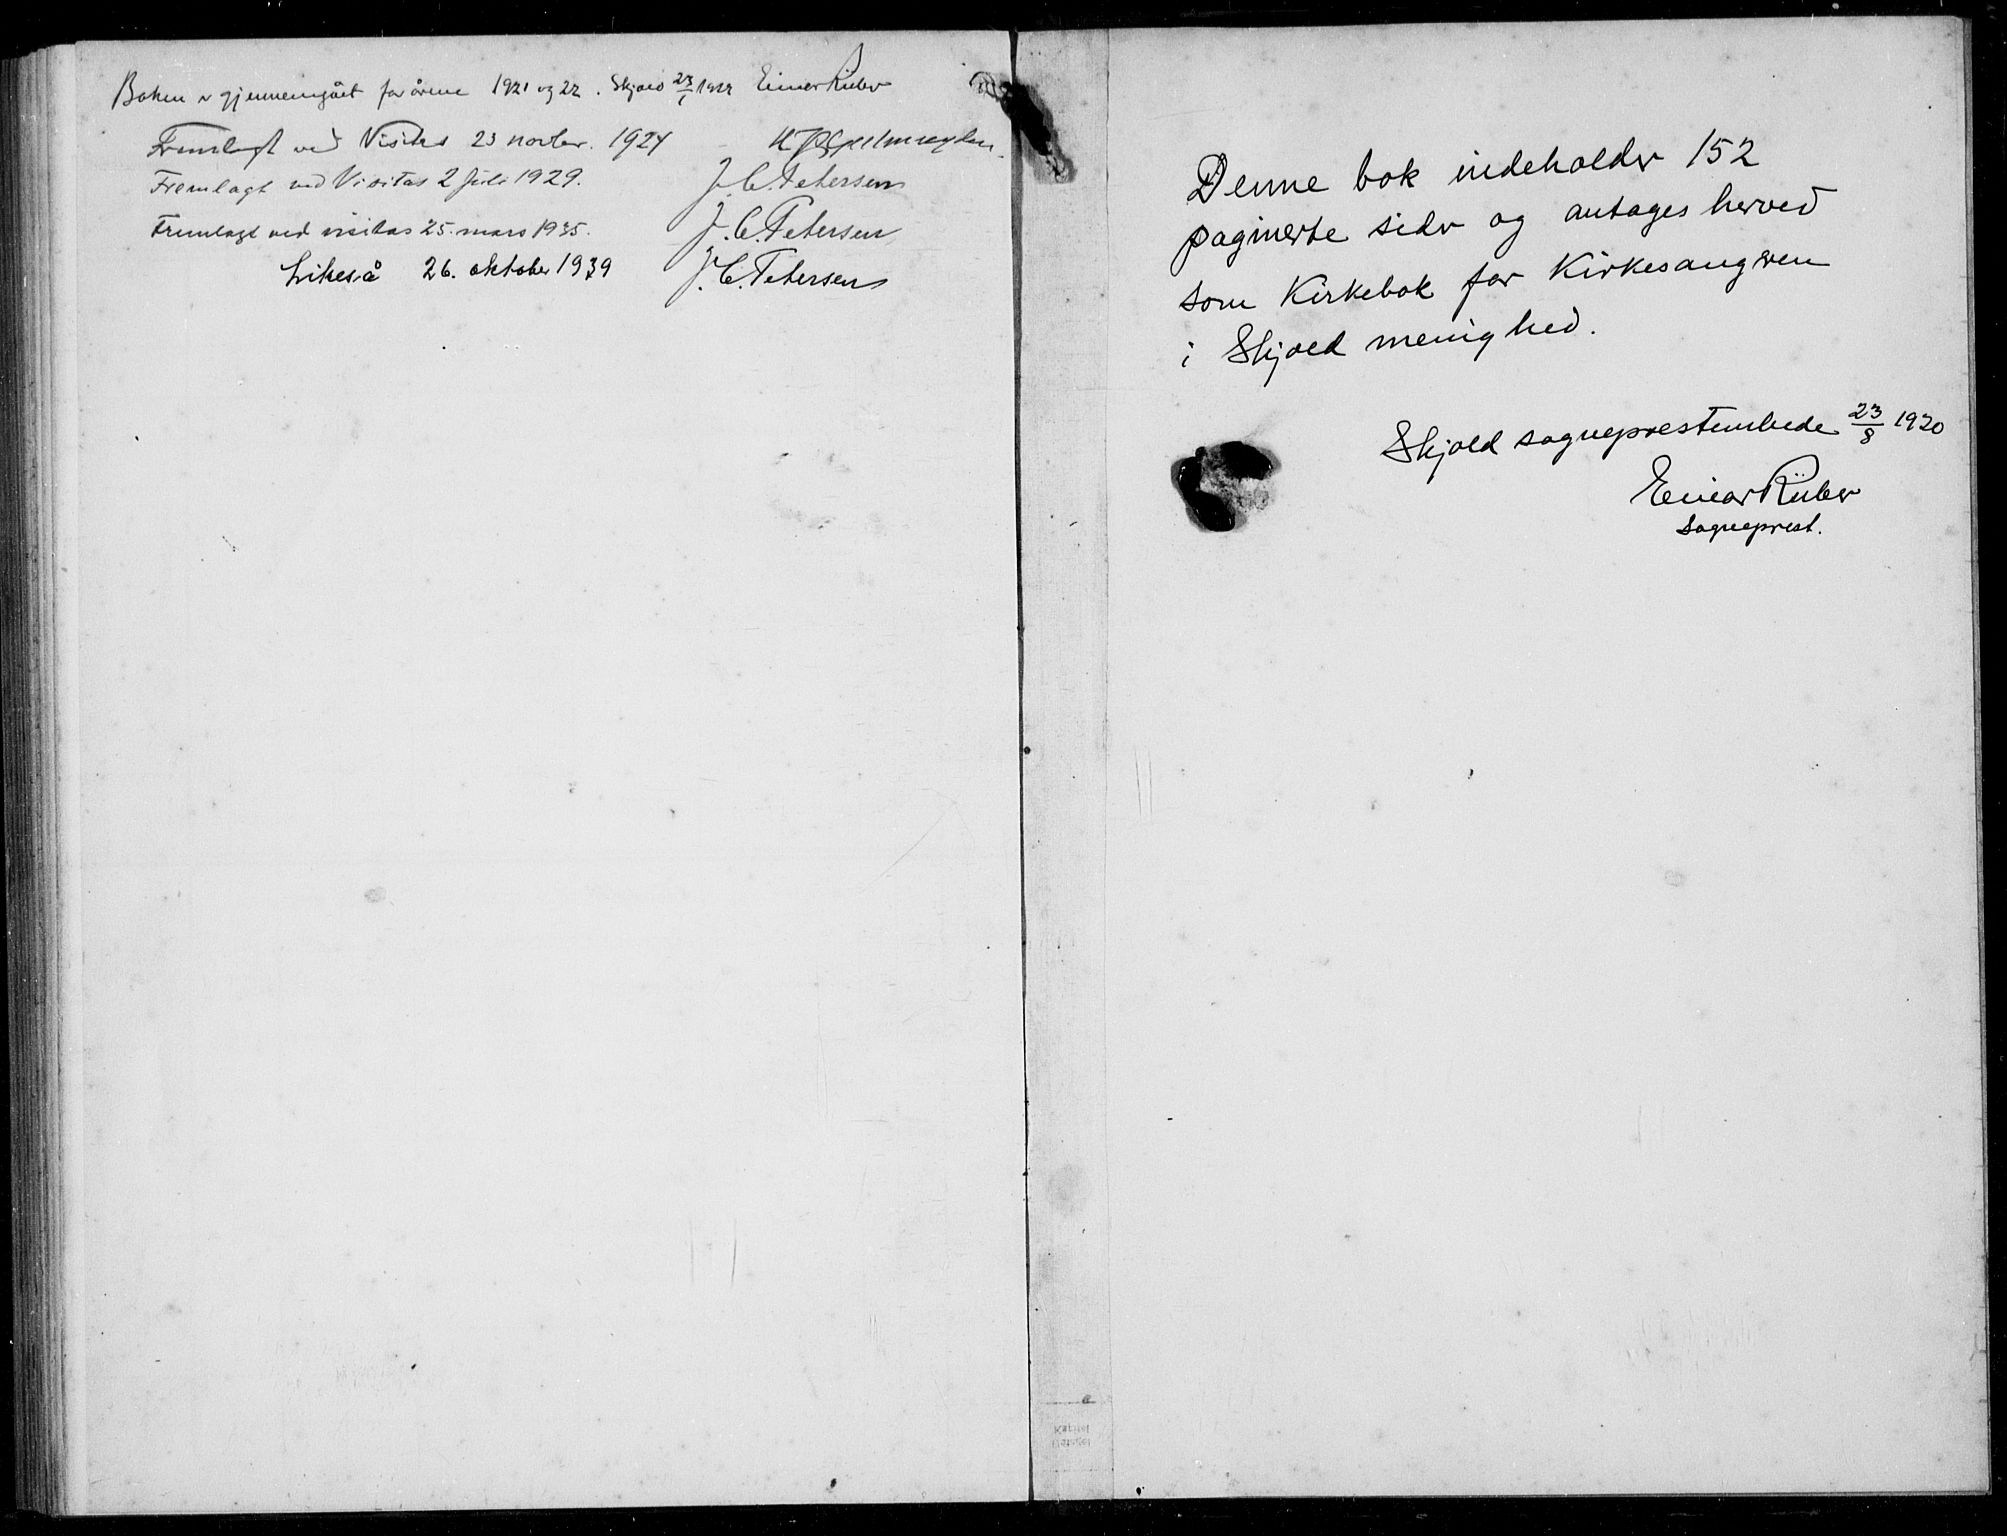 Boken er gjennemgået for årene 1921 og 22. Skjold 23/1 1922 Einar Rüber
Fremlagt ved Visitas 23 novbr. 1924
Fremlagt ved Visitas 2 juli 1929. J. C. Petersen
Fremlagt ved visitas 25. mars 1935. J. C. Petersen
Likeså 26. oktober 1939 J. C. Petersen
Denne bok indeholder 152
paginerte sider og antages herved
som Kirkebok for Kirkesangeren
i Skjold menighed.
Skjold sogneprestembede 23/8 1920
Einar Rüber
Sogneprest.